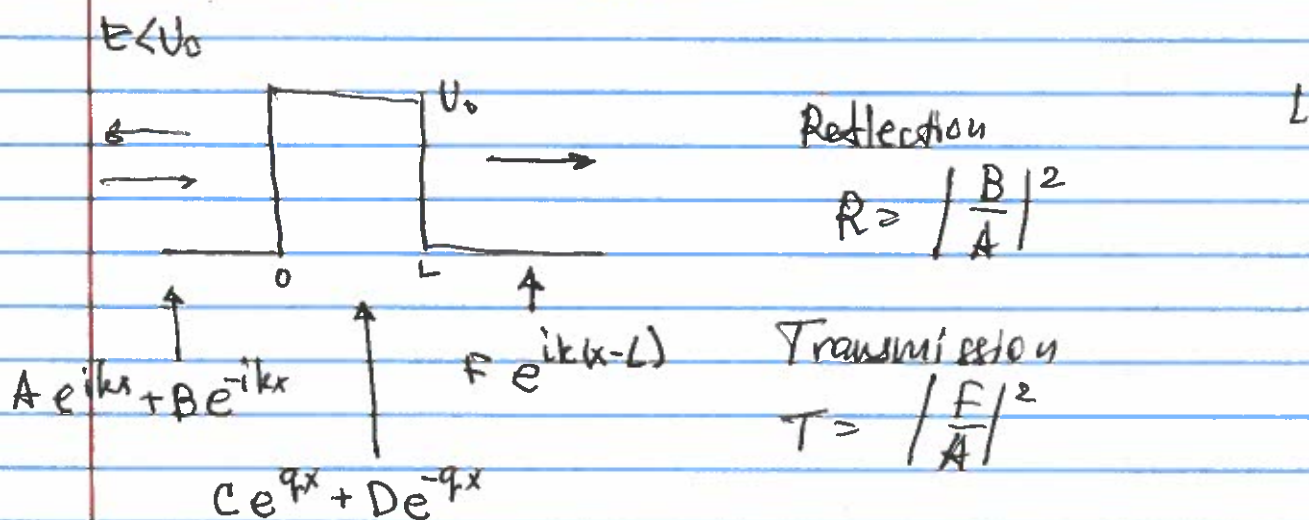 E<U₀
U₀
Reflection
R = |B/A|²
0 L
A e^{ikx} + B e^{-ikx}
F e^{ik(x-L)}
Transmission
T = |F/A|²
C e^{qx} + D e^{-qx}